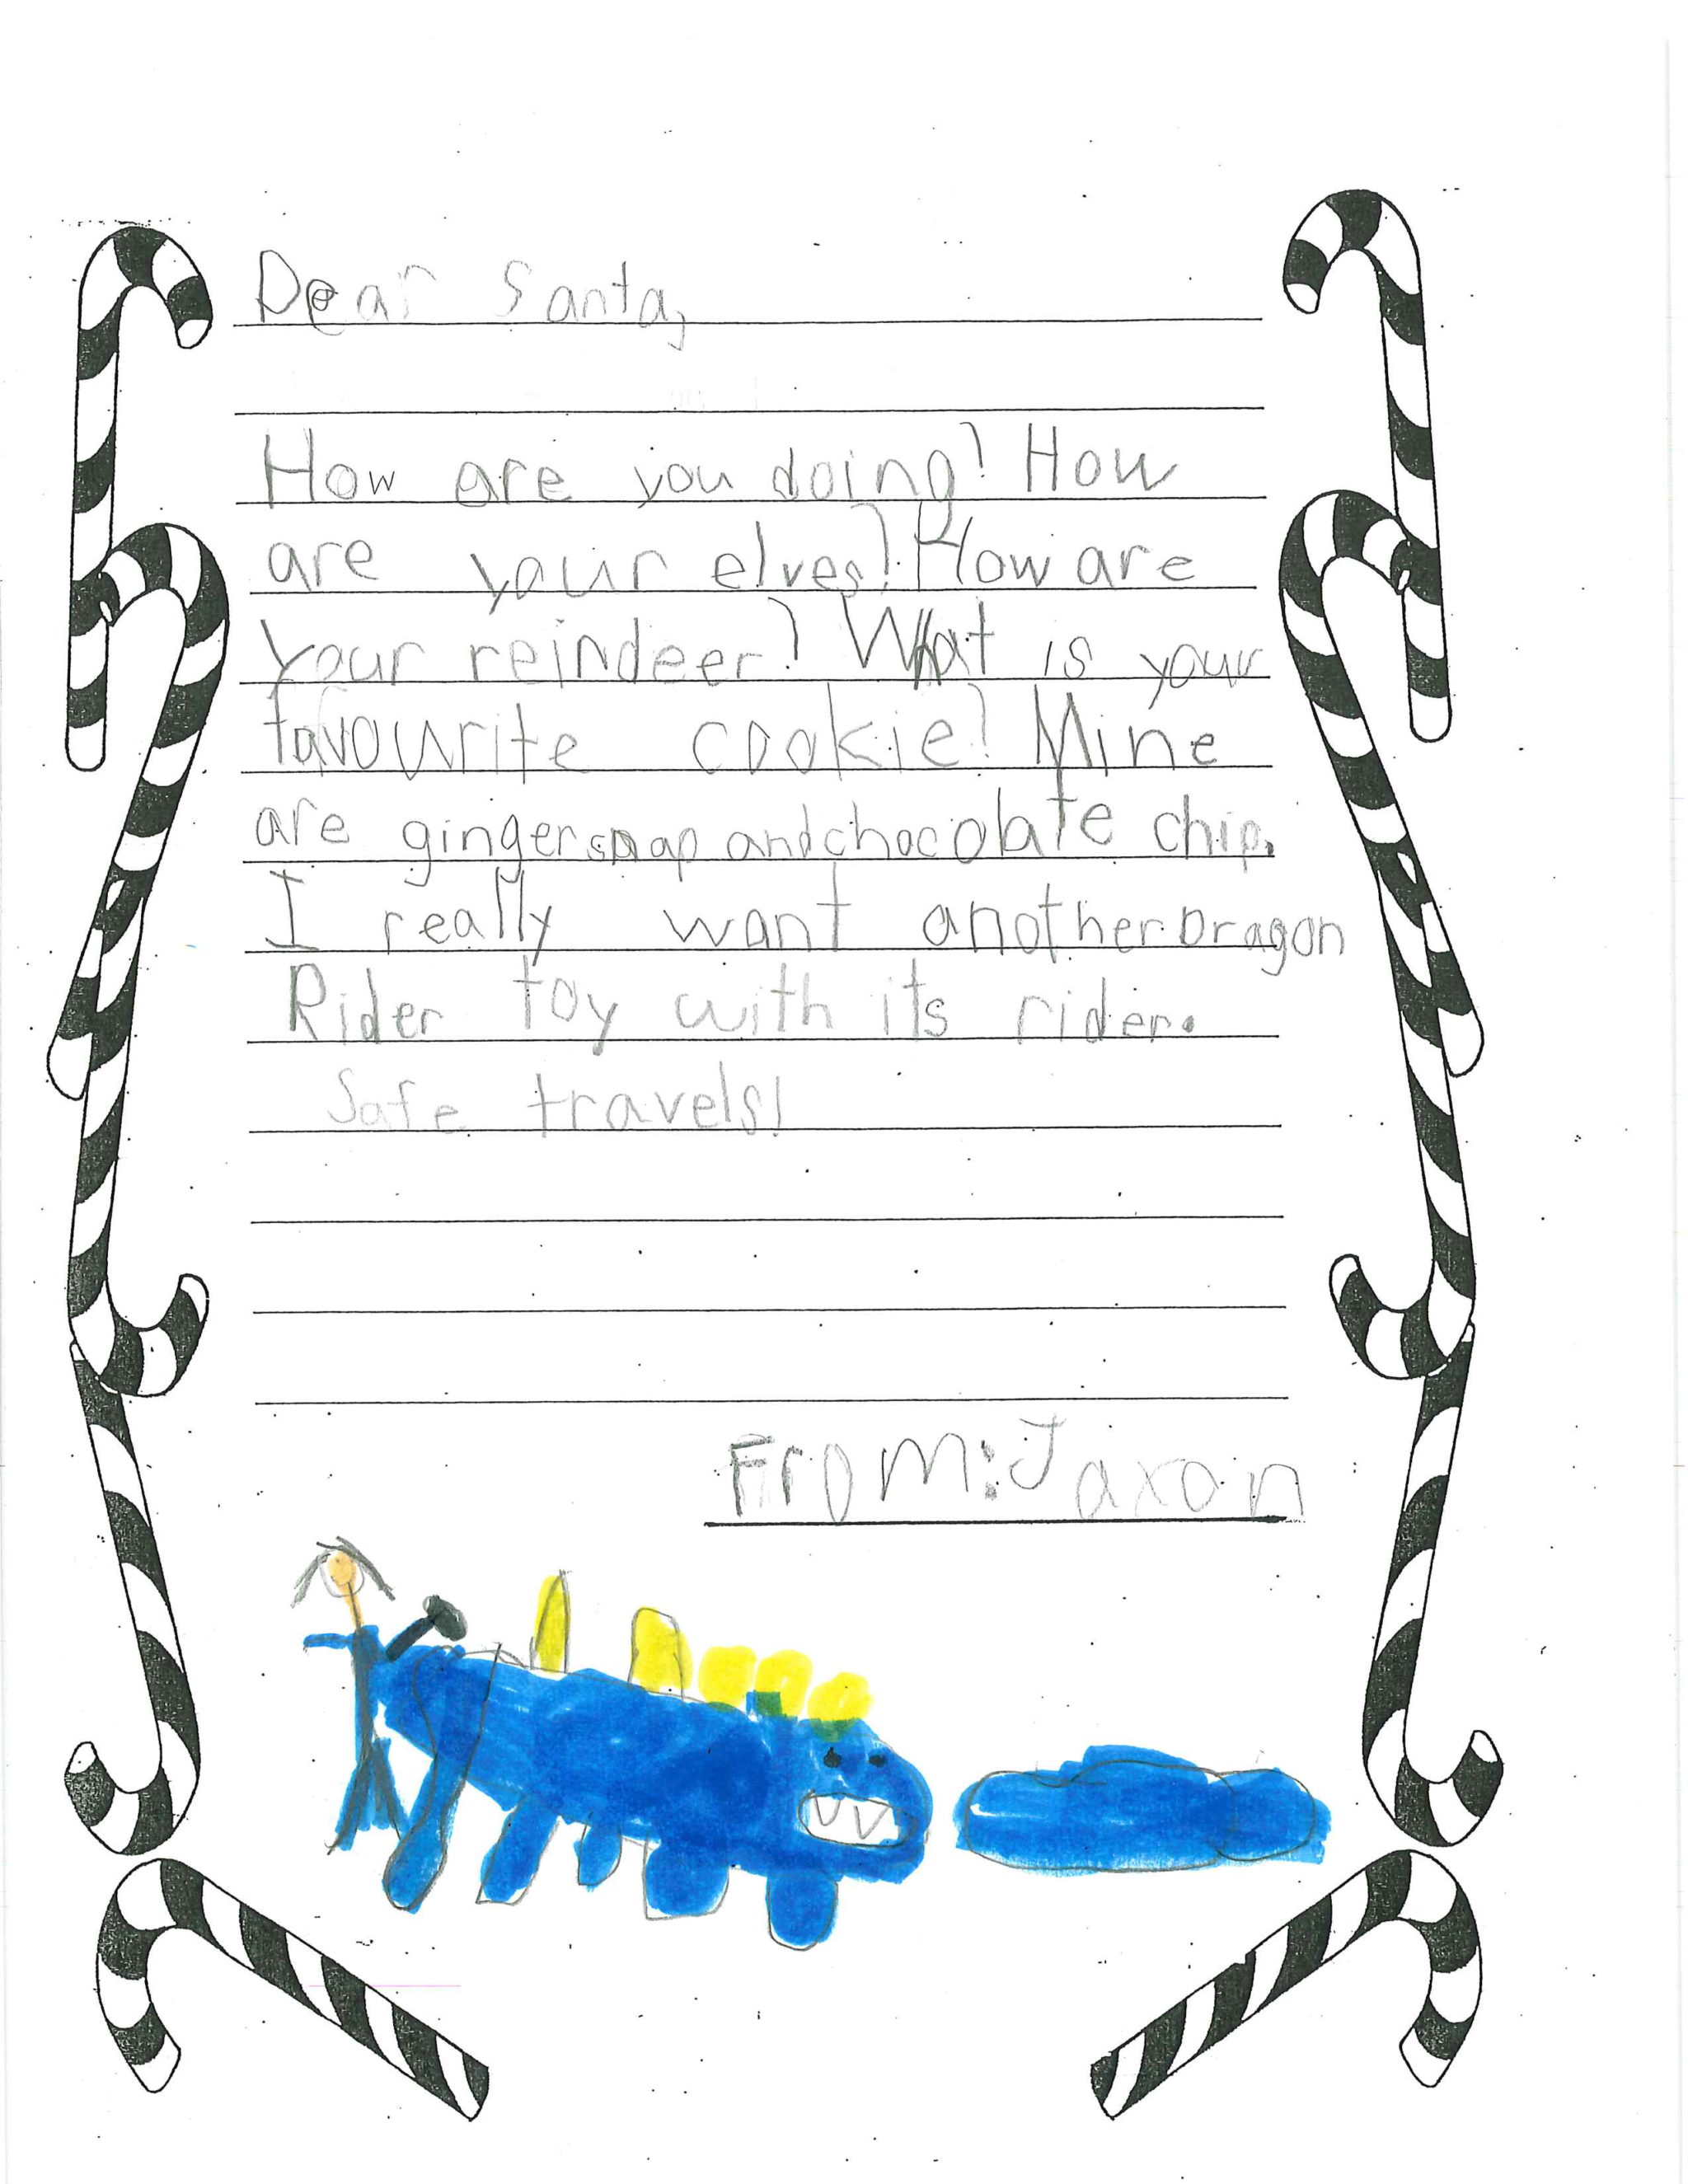 Dear Santa,
How are you doing? How
are your elves? How are
your reindeer? What is your
favourite cookie? Mine
are gingersnap and chocolate chip.
I really want another Dragon
Rider toy with its rider.
Safe travels!
From: Jaxon